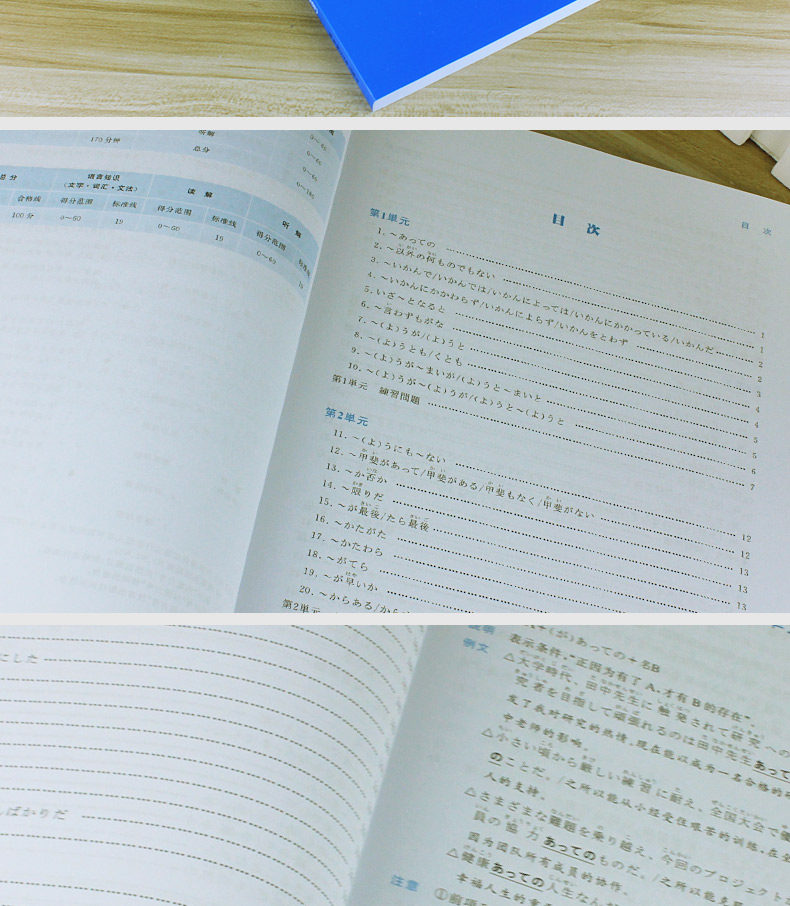 170分钟
听解
0～60
总分
0～60
0～60
0～180
总分
语言知识
(文字·词汇·文法)
读解
听解
合格线
得分范围
标准线
得分范围
标准线
得分范围
标准线
100分
0～60
19
0～60
19
0～60
19
目次
目次
第1单元
1. ～あっての 1
2. ～以外の何ものでもない 1
3. ～いかんで/いかんでは/いかんによっては/いかんにかかっている/いかんだ 2
4. ～いかんにかかわらず/いかんによらず/いかんをとわず 2
5. いざ～となると 3
6. ～言わずもがな 4
7. ～(よ)うが/(よ)うと 4
8. ～(よ)うとも/くとも 5
9. ～(よ)うが～まいが/(よ)うと～まいと 5
10. ～(よ)うが～(よ)うが/(よ)うと～(よ)うと 6
第1单元 練習問題 7
第2单元
11. ～(よ)うにも～ない 12
12. ～甲斐があって/甲斐がある/甲斐もなく/甲斐がない 12
13. ～か否か 13
14. ～限りだ 13
15. ～が最後/たら最後 13
16. ～かたがた
17. ～かたわら
18. ～がてら
19. ～が早いか
20. ～からある/から
第2单元
にした
んばかりだ
(が)あっての＋名B
表示条件,"正因为有了A,才有B的存在"。
例文
△大学時代、田中先生に触発されて研究への
究者を目指して頑張れるのは田中先生あって
发了我对研究的热情,现在能以成为一名合格的
中老师的影响。
△小さい頃から厳しい練習に耐え、全国大会で
のことだ。/之所以能从小经受住艰苦的训练,在全
人的支持。
△さまざまな難題を乗り越え、今回のプロジェクト
員の協力あってのものだ。/之所以能
因为团队所有成员的协作。
△健康あっての人生なん
幸福人生的
注意
①前项